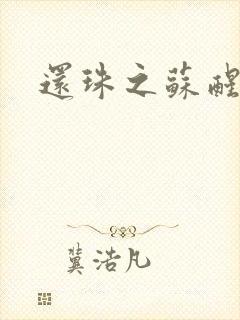 還珠之蘇醒
冀浩凡